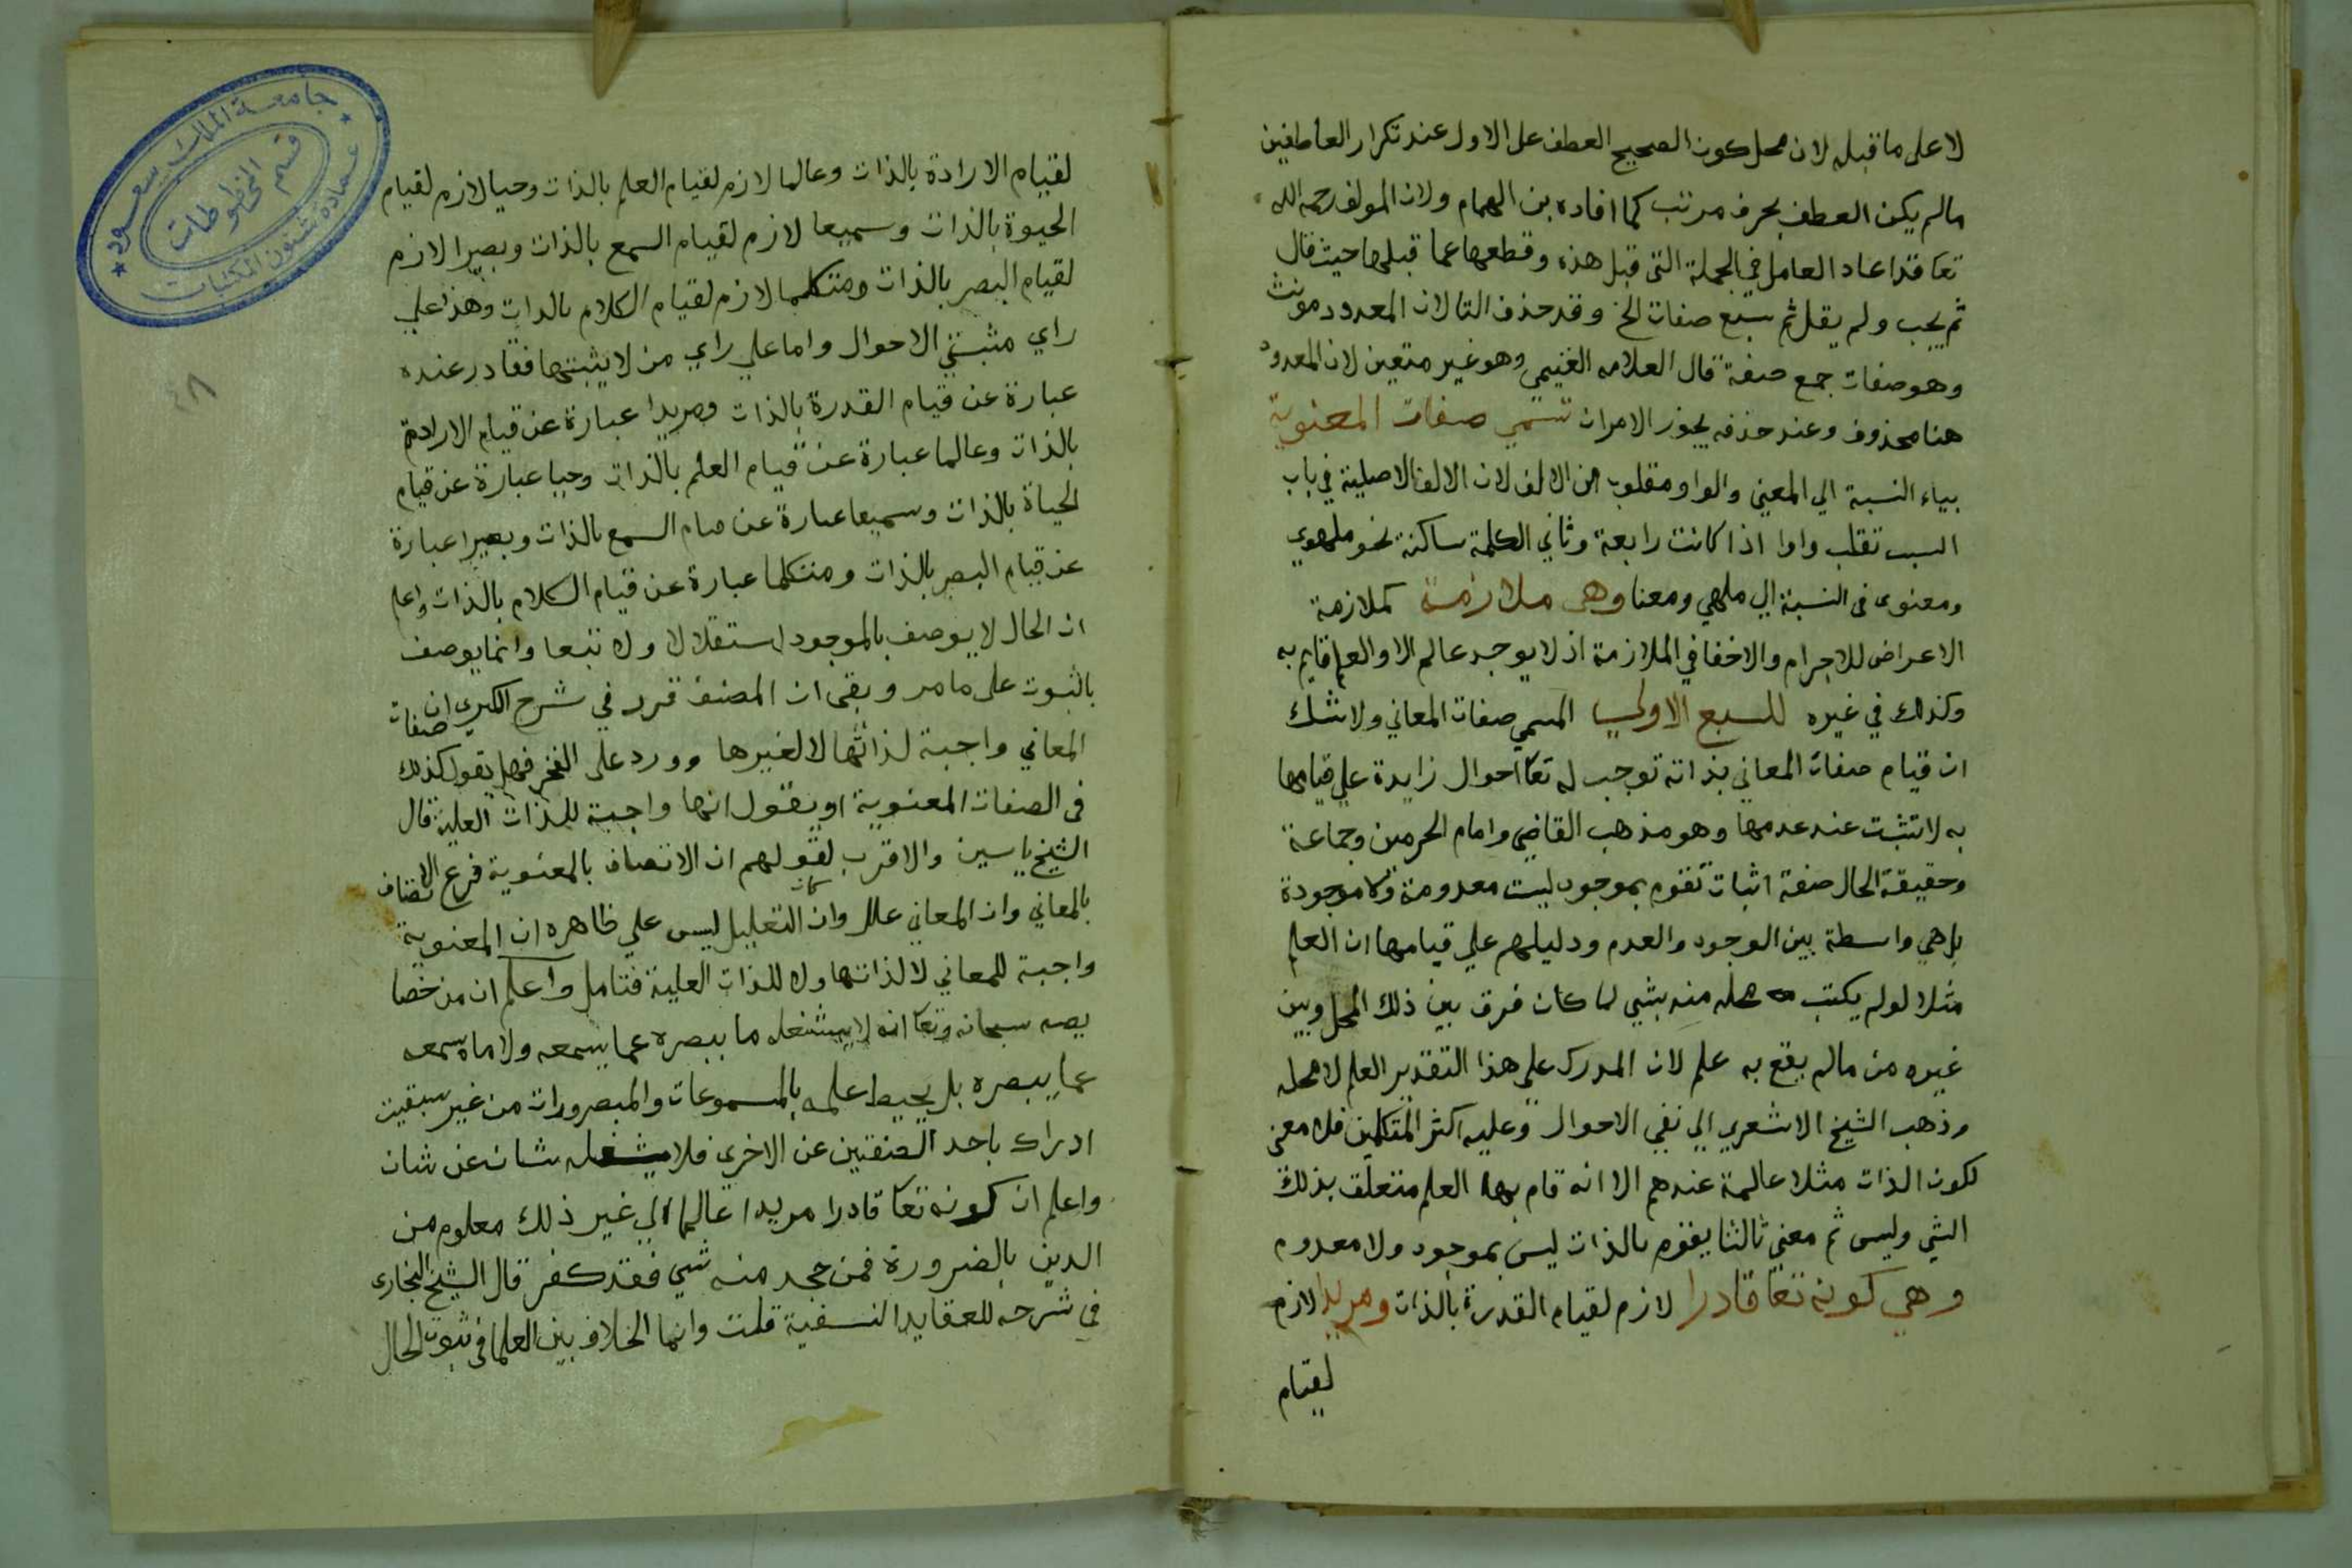 لا على ما قبله لان محل كون الصحيح العطف على الاول عند تكرار العاطفين
مالم يكن العطف بحرف مرتب كما افاده بن الهمام ولان المولف رحمه الله
تعا قد اعاد العامل في الجملة التى قبل هذه وقطعها عما قبلها حيث قال
ثم يجب ولم يقل ثم سبع صفات الخ وقد حذف التا لان المعدود مونث
وهو صفات جمع صفة قال العلامه الغنيمي وهو غير متعين لان المعدود
هنا محذوف وعند حذفه يجوز الامران تسمي صفات المعنوية
بياء النسبة الي المعنى والواو مقلوب من الالف لان الالف الاصلية في باب
السب تقلب واوا اذا كانت رابعة وثاني الكلمة ساكنة نحو ملهوي
ومعنوى فى النسبة الي ملهي ومعنا وهى ملازمة كملازمة
الاعراض للاجرام والاخفا في الملازمة اذ لا يوجد عالم الا والعلم قايم به
وكذلك في غيره للسبع الاولي المسمي صفات المعاني ولا شك
ان قيام صفات المعاني بذاته توجب له تعا احوال زايدة علي قيامها
به لا تثبت عند عدمها وهو مذهب القاضي وامام الحرمين وجماعة
وحقيقة الحال صفة اثبات تقوم بموجود ليست معدومة ولا موجودة
بل هي واسطة بين الوجود والعدم ودليلهم علي قيامها ان العلم
مثلا لو لم يكتب محله منه بشي لما كان فرق بين ذلك المحل وبين
غيره من مالم يقع به علم لان المدرك علي هذا التقدير العلم لا محله
وذهب الشيخ الاشعري الي نفي الاحوال وعليه اكثر المتكلمين فلا معنى
لكون الذات مثلا عالمة عندهم الا انه قام بها العلم متعلق بذلك
الشي وليس ثم معني ثالثا يقوم بالذات ليس بموجود ولا معدوم
وهي كونه تعا قادرا لازم لقيام القدرة بالذات ومريدا لازم
لقيام
لقيام الارادة بالذات وعالما لازم لقيام العلم بالذات وحيا لازم لقيام
الحيوة بالذات وسميعا لازم لقيام السمع بالذات وبصيرا لازم
لقيام البصر بالذات ومتكلما لازم لقيام الكلام بالذات وهذا علي
راي مثبتي الاحوال واما علي راي من لا يثبتها فقادر عنده
عبارة عن قيام القدرة بالذات ومريدا عبارة عن قيام الارادة
بالذات وعالما عبارة عن قيام العلم بالذات وحيا عبارة عن قيام
الحياة بالذات وسميعا عبارة عن قيام السمع بالذات وبصيرا عبارة
عن قيام البصر بالذات ومتكلما عبارة عن قيام الكلام بالذات واعلم
ان الحال لا يوصف بالموجود استقلالا ولا تبعا وانما يوصف
بالثبوت على ما مر وبقى ان المصنف قرر في شرح الكبري ان صفات
المعاني واجبة لذاتها لا لغيرها وورد على الفخر فهل يقول كذلك
فى الصفات المعنوية او يقول انها واجبة للذات العلية قال
الشيخ ياسين والاقرب لقولهم ان الاتصاف بالمعنوية فرع الاتصاف
بالمعاني وان المعاني علل وان كان التعليل ليس علي ظاهره ان المعنوية
واجبة للمعاني لا لذاتها ولا للذات العلية فتامل واعلم ان من خصا
يصه سبحانه وتعا انه لا يشغله ما يبصره عما يسمعه ولا ما يسمعه
عما يبصره بل يحيط علمه بالمسموعات والمبصرورات من غير سبقيت
ادراك باحد الصفتين عن الاخري فلا يشغله شان عن شان
واعلم ان كونه تعا قادرا مريدا عالما الي غير ذلك معلوم من
الدين بالضرورة فمن جحد منه شي فقد كفر قال الشيخ البخارى
في شرحه للعقايد النسفية قلت وانما الخلاف بين العلما فى ثبوت الحال
٤٨
جامعة الملك سعود
عمادة شئون المكتبات
قسم المخطوطات